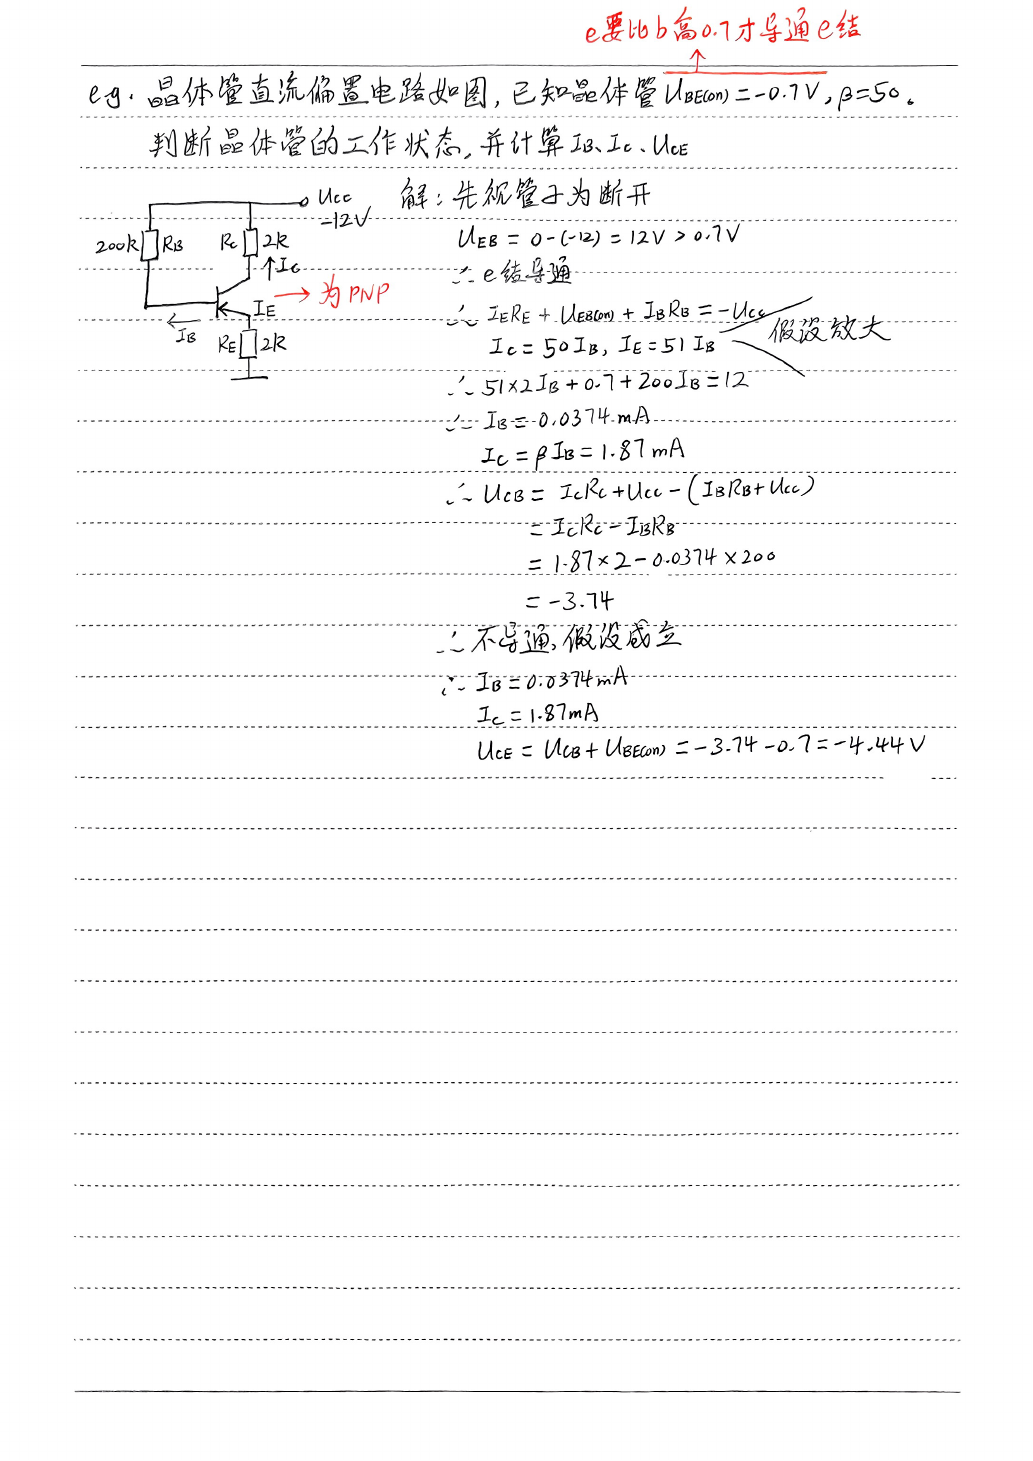 e要比b高0.7才导通e结
e.g. 晶体管直流偏置电路如图,已知晶体管UBE(on)=-0.7V,β=50。
判断晶体管的工作状态,并计算IB、IC、UCE
UCC
-12V
200k RB RC 2k
IC
IE → 为PNP
IB
RE 2k
解:先视管子为断开
UEB = 0-(-12) = 12V > 0.7V
∴ e结导通
∴ IERE + UEB(on) + IBRB = -UCC
IC = 50IB, IE = 51IB
假设放大
∴ 51×2IB+0.7+200IB=12
∴ IB = 0.0374mA
IC = βIB = 1.87mA
∴ UCB = ICRC+UCC-(IBRB+UCC)
= ICRC-IBRB
= 1.87×2-0.0374×200
= -3.74
∴ 不导通,假设成立
∴ IB=0.0374mA
IC=1.87mA
UCE = UCB+UBE(on) = -3.74-0.7=-4.44V